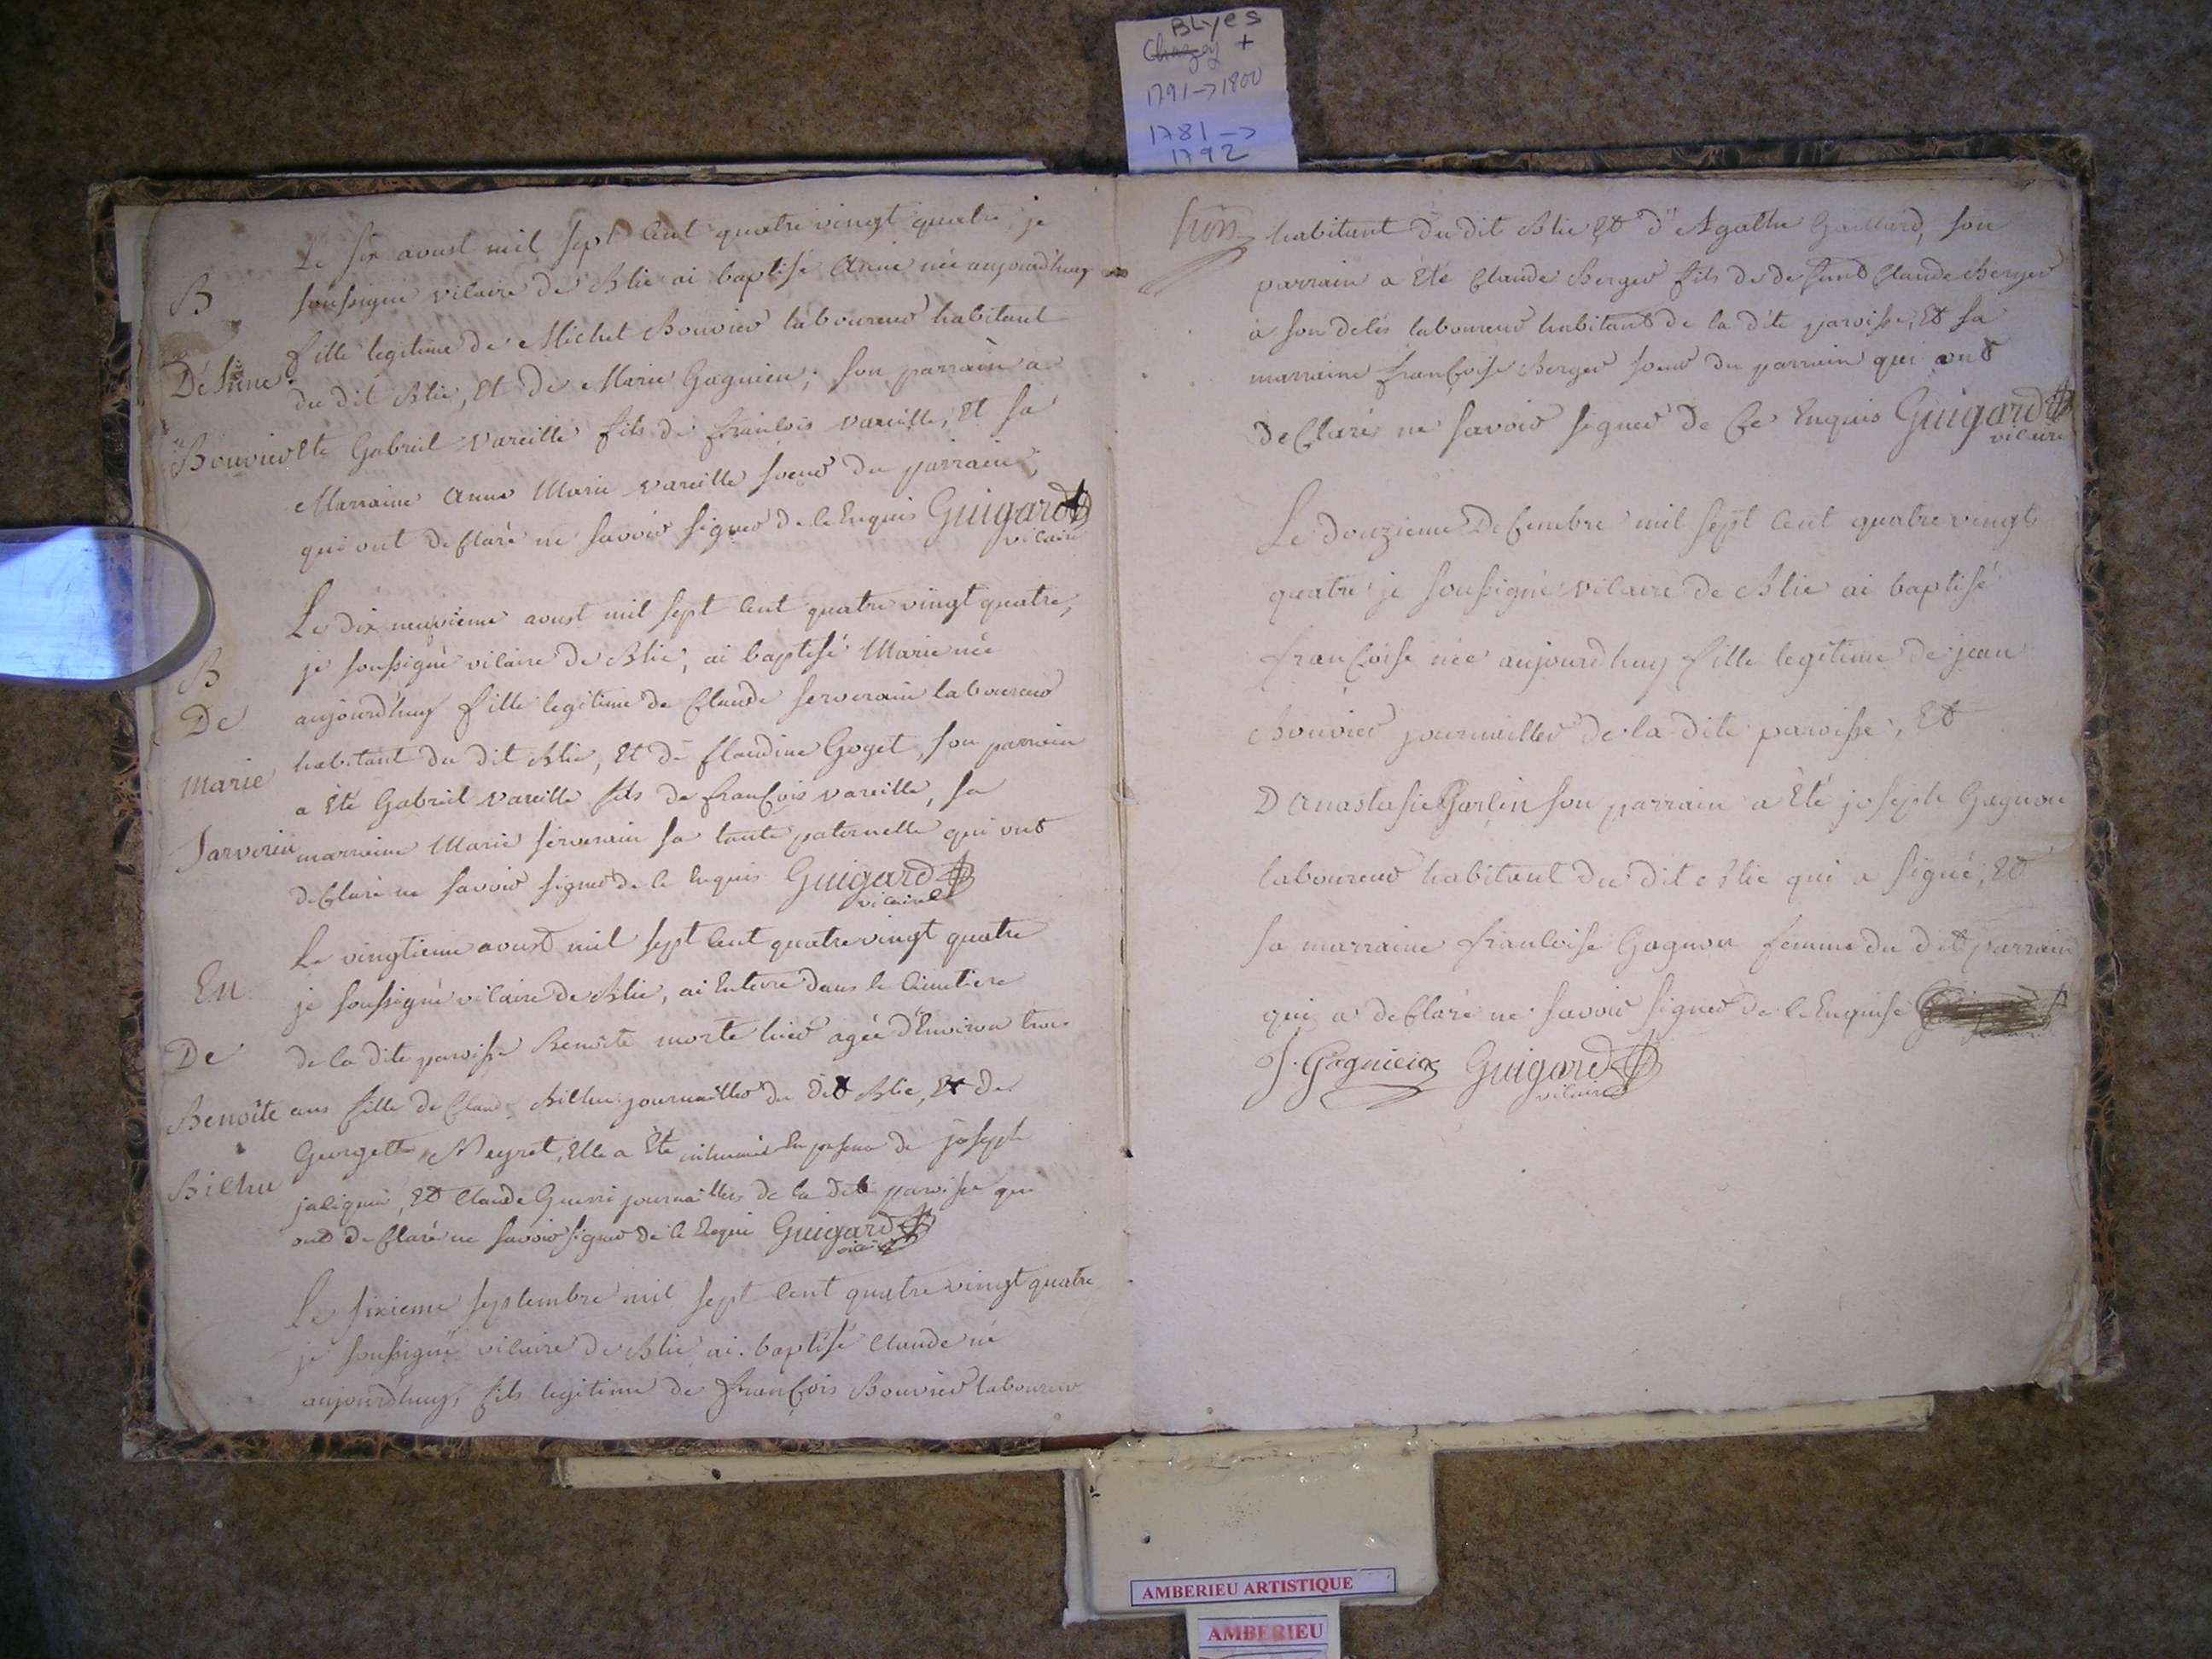 BLyes
Chazey +
1791->1800
1781->
1792
Le six aoust mil sept cent quatre vingt quatre, je
B
soussigné vicaire de Blie ai baptisé Anne née aujourdhuy
fille legitime de Michel Bouvier laboureur habitant
du dit Blie, Et de Marie Gagnieu, son parrain a
Bouvier
Eté Gabriel Vareille fils de francois Vareille, Et sa
Marraine Anne Marie Vareille soeur du parrain,
qui ont declaré ne savoir signer de ce Enquis Guigard
vicaire
Le dix neuvieme aoust mil sept cent quatre vingt quatre,
B
je soussigné vicaire de Blie, ai baptisé Marie née
De
aujourdhuy fille legitime de Claude serverain laboureur
habitant du dit Blie, Et de Claudine Goget, son parrain
Marie
a Eté Gabriel Vareille fils de francois Vareille, sa
Sarverin
marraine Marie serverain sa tante paternelle qui ont
declaré ne savoir signer de ce Enquis Guigard
vicaire
Le vingtieme aoust mil sept cent quatre vingt quatre
En
je soussigné vicaire de Blie, ai Enterre dans le Cimetiere
De
de la dite paroisse Benoite morte hier agée d'Environ trois
Benoîte
ans fille de Claude Bilhu journailler du dit Blie, Et de
Georgette Meyret, Elle a Eté inhumée En presence de joseph
Bilhu
, Et Claude journailliers de la dite paroisse qui
ont declaré ne savoir signer de ce Enqui Guigard
vicaire
Le sixieme septembre mil sept cent quatre vingt quatre
je soussigné vicaire de Blie ai baptisé Claude né
aujourdhuy, fils legitime de francois Bouvier laboureur
habitant du dit Blie Et d'Agathe Gaillard, son
parrain a Eté Claude Berger fils de defunt Claude Berger
a son deces laboureur habitant de la dite paroisse, Et sa
marraine francoise Berger soeur du parrain qui ont
declaré ne savoir signer de ce Enquis Guigard
vicaire
Le douzieme Decembre mil sept cent quatre vingt
quatre je soussigné vicaire de Blie ai baptisé
francoise née aujourdhuy fille legitime de jean
Bouvier journailler de la dite paroisse, Et
D'anastasie Garlin son parrain a Eté joseph Gagnon
laboureur habitant du dit Blie qui a signé, Et
sa marraine francoise Gagnon femme du dit parrain
qui a declaré ne savoir signer de ce Enquise
J. Gagnieux Guigard
vicaire
AMBERIEU ARTISTIQUE
AMBERIEU